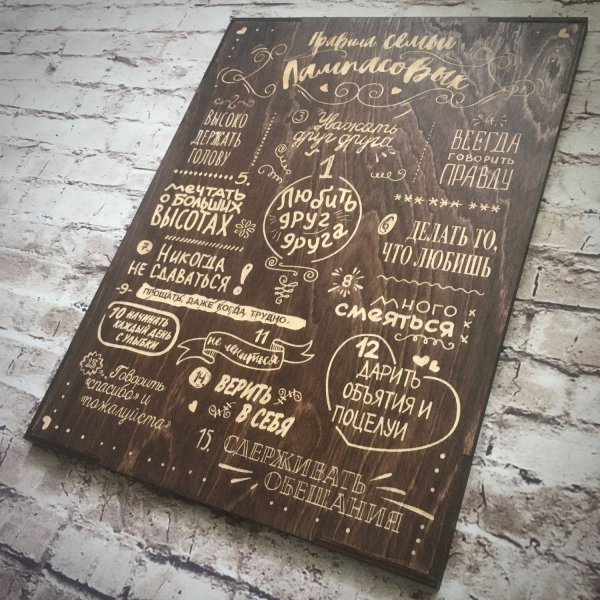 Правила семьи
Лампасовых
1
Любить
друг
друга
2
ВЫСОКО
ДЕРЖАТЬ
ГОЛОВУ
3 Уважать
друг друга
4.
ВСЕГДА
ГОВОРИТЬ
ПРАВДУ
5.
МЕЧТАТЬ
О БОЛЬШИХ
ВЫСОТАХ
6 ДЕЛАТЬ ТО,
ЧТО ЛЮБИШЬ
7. НИКОГДА
НЕ СДАВАТЬСЯ!
8
МНОГО
СМЕЯТЬСЯ
-9-
ПРОЩАТЬ, ДАЖЕ КОГДА ТРУДНО.
10 НАЧИНАТЬ
КАЖДЫЙ ДЕНЬ
С УЛЫБКИ
11
не лениться
12
ДАРИТЬ
ОБЪЯТИЯ И
ПОЦЕЛУИ
Говорить
«спасибо» и
«пожалуйста»
14 ВЕРИТЬ
В СЕБЯ
15.
СДЕРЖИВАТЬ
ОБЕЩАНИЯ